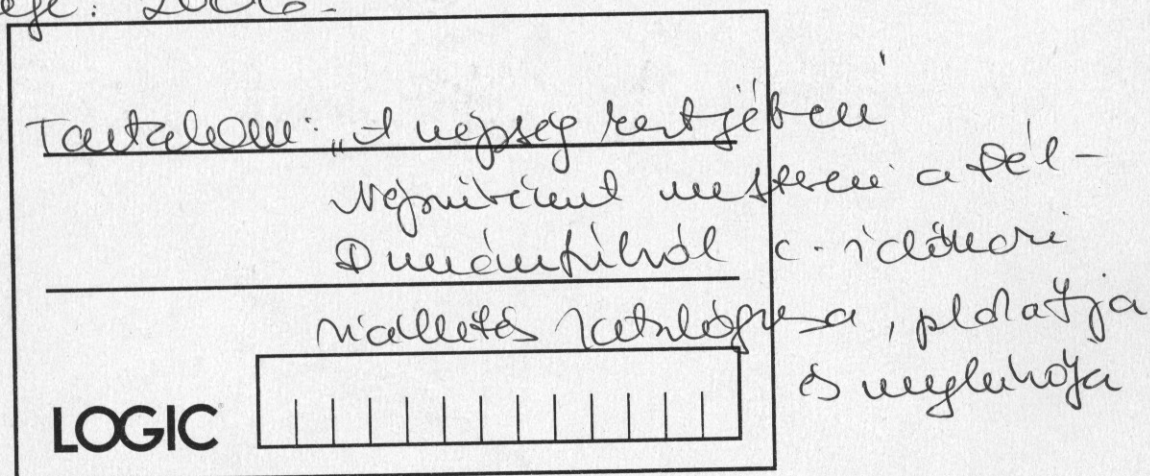 eje: 2006.
Tartalom: „A népség kertjében
Népművészet mesterei a Dél-
Dunántúlról c. időszaki
kiállítás katalógusa, plakátja
és meghívója
LOGIC